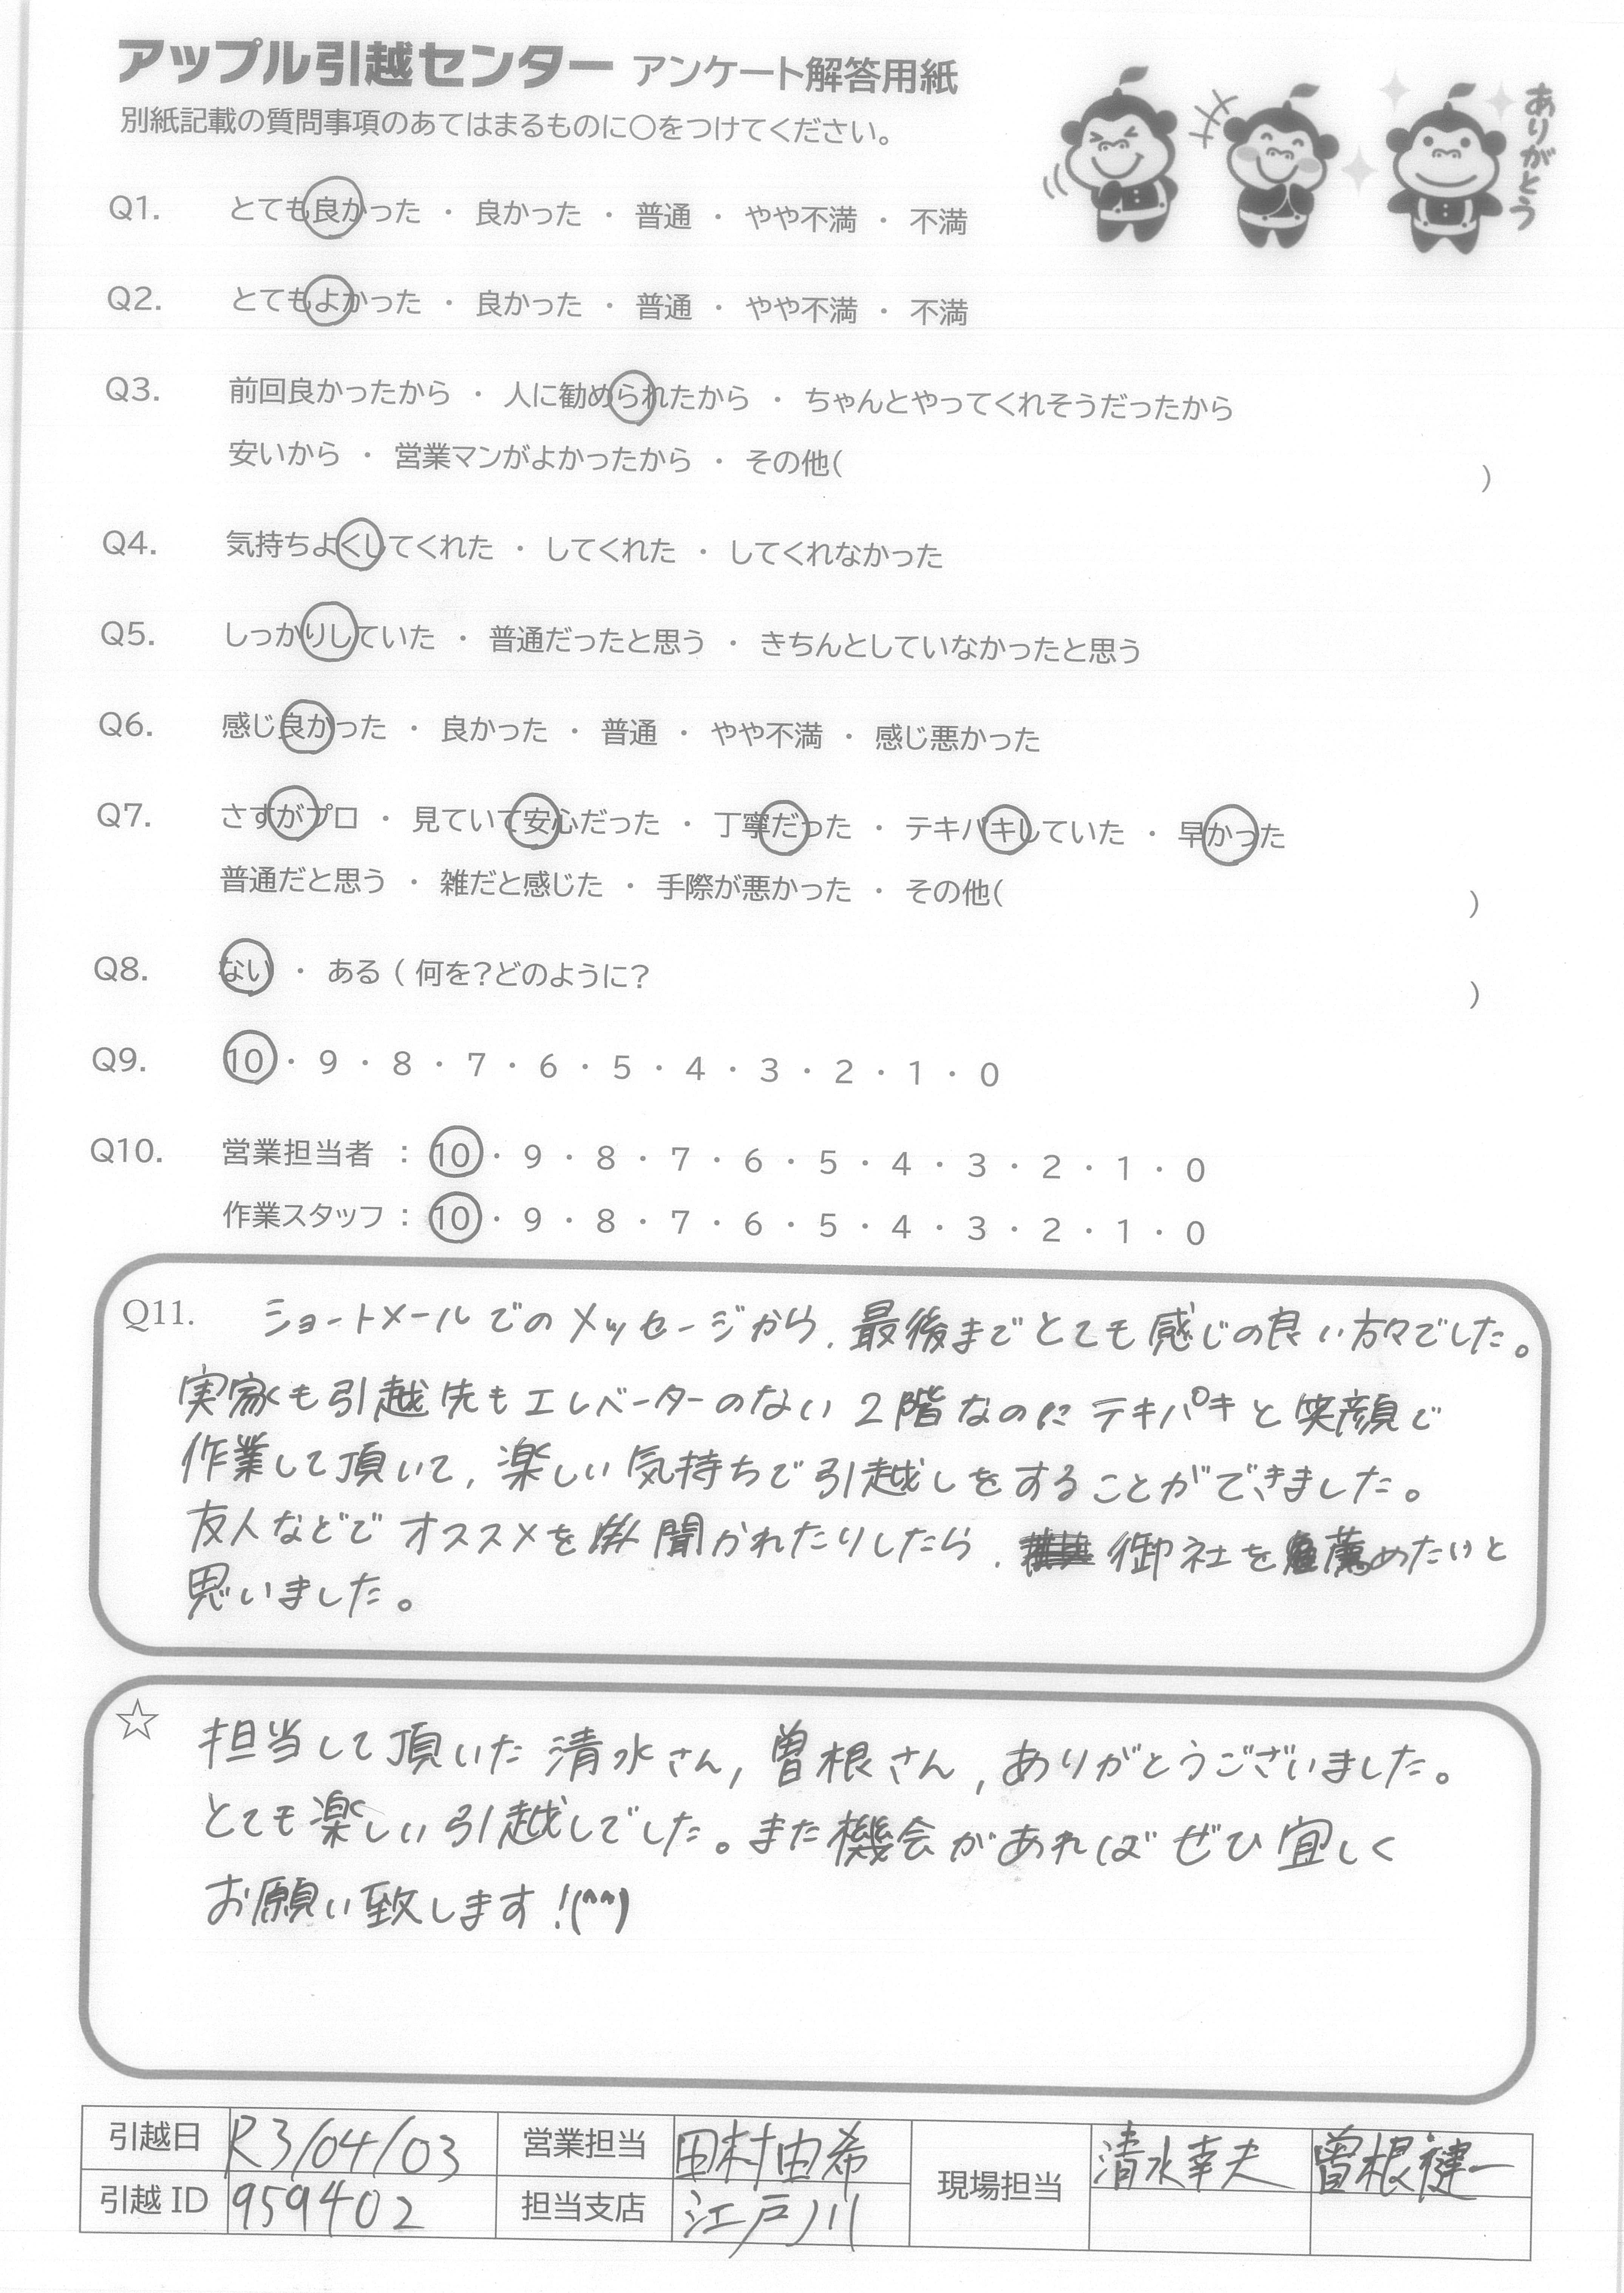 アップル引越センター アンケート解答用紙
ありがとう
別紙記載の質問事項のあてはまるものに○をつけてください。
Q1. とても良かった ・ 良かった ・ 普通 ・ やや不満 ・ 不満
Q2. とてもよかった ・ 良かった ・ 普通 ・ やや不満 ・ 不満
Q3. 前回良かったから ・ 人に勧められたから ・ ちゃんとやってくれそうだったから
安いから ・ 営業マンがよかったから ・ その他( )
Q4. 気持ちよくしてくれた ・ してくれた ・ してくれなかった
Q5. しっかりしていた ・ 普通だったと思う ・ きちんとしていなかったと思う
Q6. 感じ良かった ・ 良かった ・ 普通 ・ やや不満 ・ 感じ悪かった
Q7. さすがプロ ・ 見ていて安心だった ・ 丁寧だった ・ テキパキしていた ・ 早かった
普通だと思う ・ 雑だと感じた ・ 手際が悪かった ・ その他( )
Q8. ない ・ ある ( 何を?どのように? )
Q9. 10 ・ 9 ・ 8 ・ 7 ・ 6 ・ 5 ・ 4 ・ 3 ・ 2 ・ 1 ・ 0
Q10. 営業担当者 : 10 ・ 9 ・ 8 ・ 7 ・ 6 ・ 5 ・ 4 ・ 3 ・ 2 ・ 1 ・ 0
作業スタッフ : 10 ・ 9 ・ 8 ・ 7 ・ 6 ・ 5 ・ 4 ・ 3 ・ 2 ・ 1 ・ 0
Q11. ショートメールでのメッセージから、最後までとても感じの良い方々でした。
実家も引越先もエレベーターのない2階なのにテキパキと笑顔で
作業して頂いて、楽しい気持ちで引越しをすることができました。
友人などでオススメを聞かれたりしたら、御社を薦めたいと
思いました。
☆ 担当して頂いた清水さん,曽根さん,ありがとうございました。
とても楽しい引越しでした。また機会があればぜひ宜しく
お願い致します!(^^)
引越日 R3/04/03 営業担当 田村由希 現場担当 清水幸夫 曽根健一
引越ID 959402 担当支店 江戸川